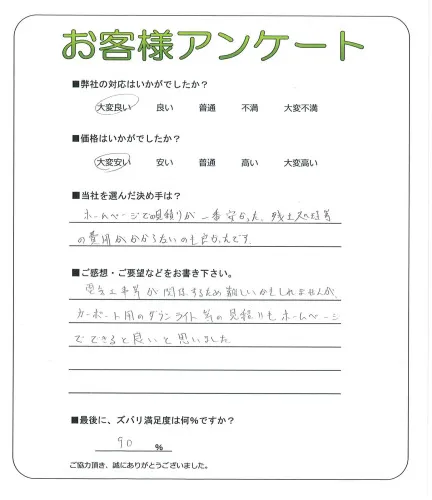 お客様アンケート
■弊社の対応はいかがでしたか?
大変良い 良い 普通 不満 大変不満
■価格はいかがでしたか?
大変安い 安い 普通 高い 大変高い
■当社を選んだ決め手は?
ホームページで見積りが一番安かった、残土処分等
の費用がかからないのも良かったです。
■ご感想・ご要望などをお書き下さい。
電気工事等が関係するため難しいかもしれませんが、
カーポート用のダウンライト等の見積りもホームページ
でできると良いと思いました
■最後に、ズバリ満足度は何%ですか?
90 %
ご協力頂き、誠にありがとうございました。